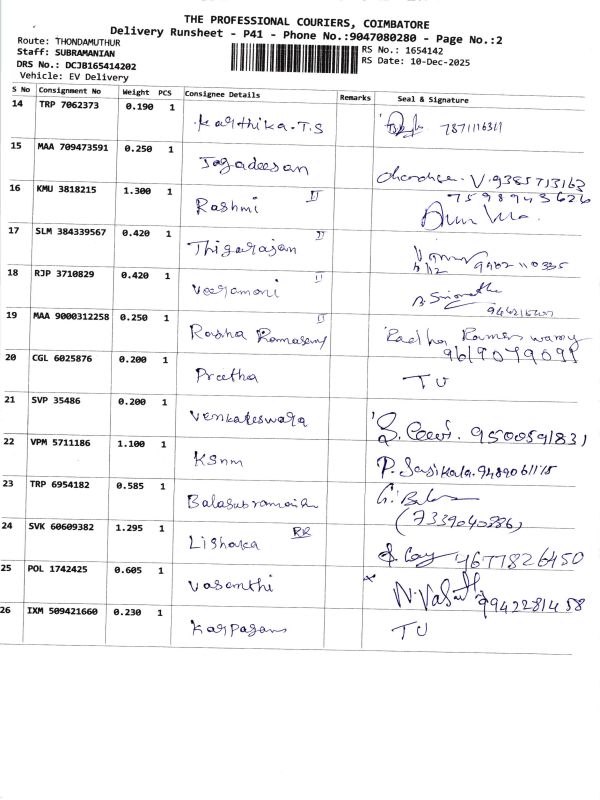 THE PROFESSIONAL COURIERS, COIMBATORE
Delivery Runsheet - P41 - Phone No.:9047080280 - Page No.:2
Route: THONDAMUTHUR
Staff: SUBRAMANIAN
DRS No.: DCJB165414202
Vehicle: EV Delivery
RS No.: 1654142
RS Date: 10-Dec-2025
S No Consignment No Weight PCS Consignee Details Remarks Seal & Signature
14 TRP 7062373 0.190 1 Karthika.T.S
15 MAA 709473591 0.250 1 Jagadeesan V.9385713163
16 KMU 3818215 1.300 1 Rashmi 7598943626
17 SLM 384339567 0.420 1 Thigarajan
18 RJP 3710829 0.420 1 Veeramani
19 MAA 9000312258 0.250 1 Rasha Ramasamy Radha Rameswamy
9619079099
20 CGL 6025876 0.200 1 Preetha TU
21 SVP 35486 0.200 1 Venkateswara 9500591831
22 VPM 5711186 1.100 1 KSnm P. Sasikala.
23 TRP 6954182 0.585 1 G. Bala
(7339040286)
24 SVK 60609382 1.295 1 Lishaka RR
25 POL 1742425 0.605 1 Vasanthi 9942281458
26 IXM 509421660 0.230 1 Karpagam TU